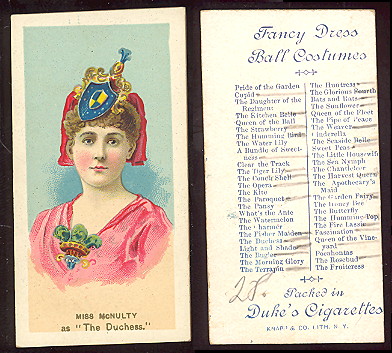 MISS McNULTY
as "The Duchess."
Fancy Dress
Ball Costumes
Pride of the Garden
Cupid
The Daughter of the
Regiment
The Kitchen Belle
Queen of the Ball
The Strawberry
The Humming Bird
The Water Lily
A Bundle of Sweet-
ness
Clear the Track
The Tiger Lily
The Conch Shell
The Opera
The Kite
The Paroquet
The Pansy
What's the Ante
The Watermelon
The Charmer
The Fisher Maiden
The Duchess
Light and Shade
The Bugler
The Morning Glory
The Terrapin
The Huntress
The Glorious Fourth
Bats and Rats
The Sunflower
Queen of the Fleet
The Pipe of Peace
The Weaver
Cinderella
The Seaside Belle
Sweet Peas
The Little Housewife
The Sea Nymph
The Chanteleer
The Harvest Queen
The Apothecary's
Maid
The Garden Fairy
The Honey Bee
The Butterfly
The Humming-Top
The Fire Lassie
Fascination
Queen of the Vine-
yard
Pocahontas
The Rosebud
The Fruiteress
28.
Packed in
Duke's Cigarettes
KNAPP & CO. LITH. N. Y.